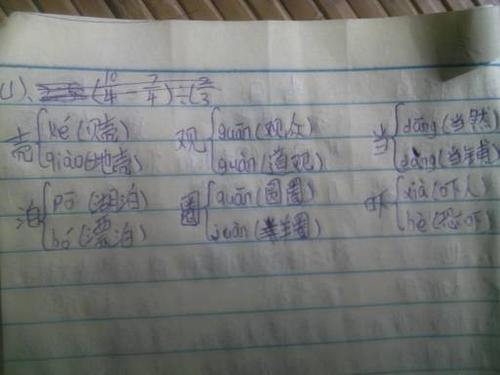 (1)、 (10/4 7/4)÷(2/3
壳 ké(贝壳) 观 guān(观众) 当 dāng(当然)
qiào(地壳) guàn(道观) dàng(当
泊 pō(湖泊) 圈 quān(圆圈) 吓 xià(吓人)
bó(漂泊) juàn(羊圈) hè(恐吓)